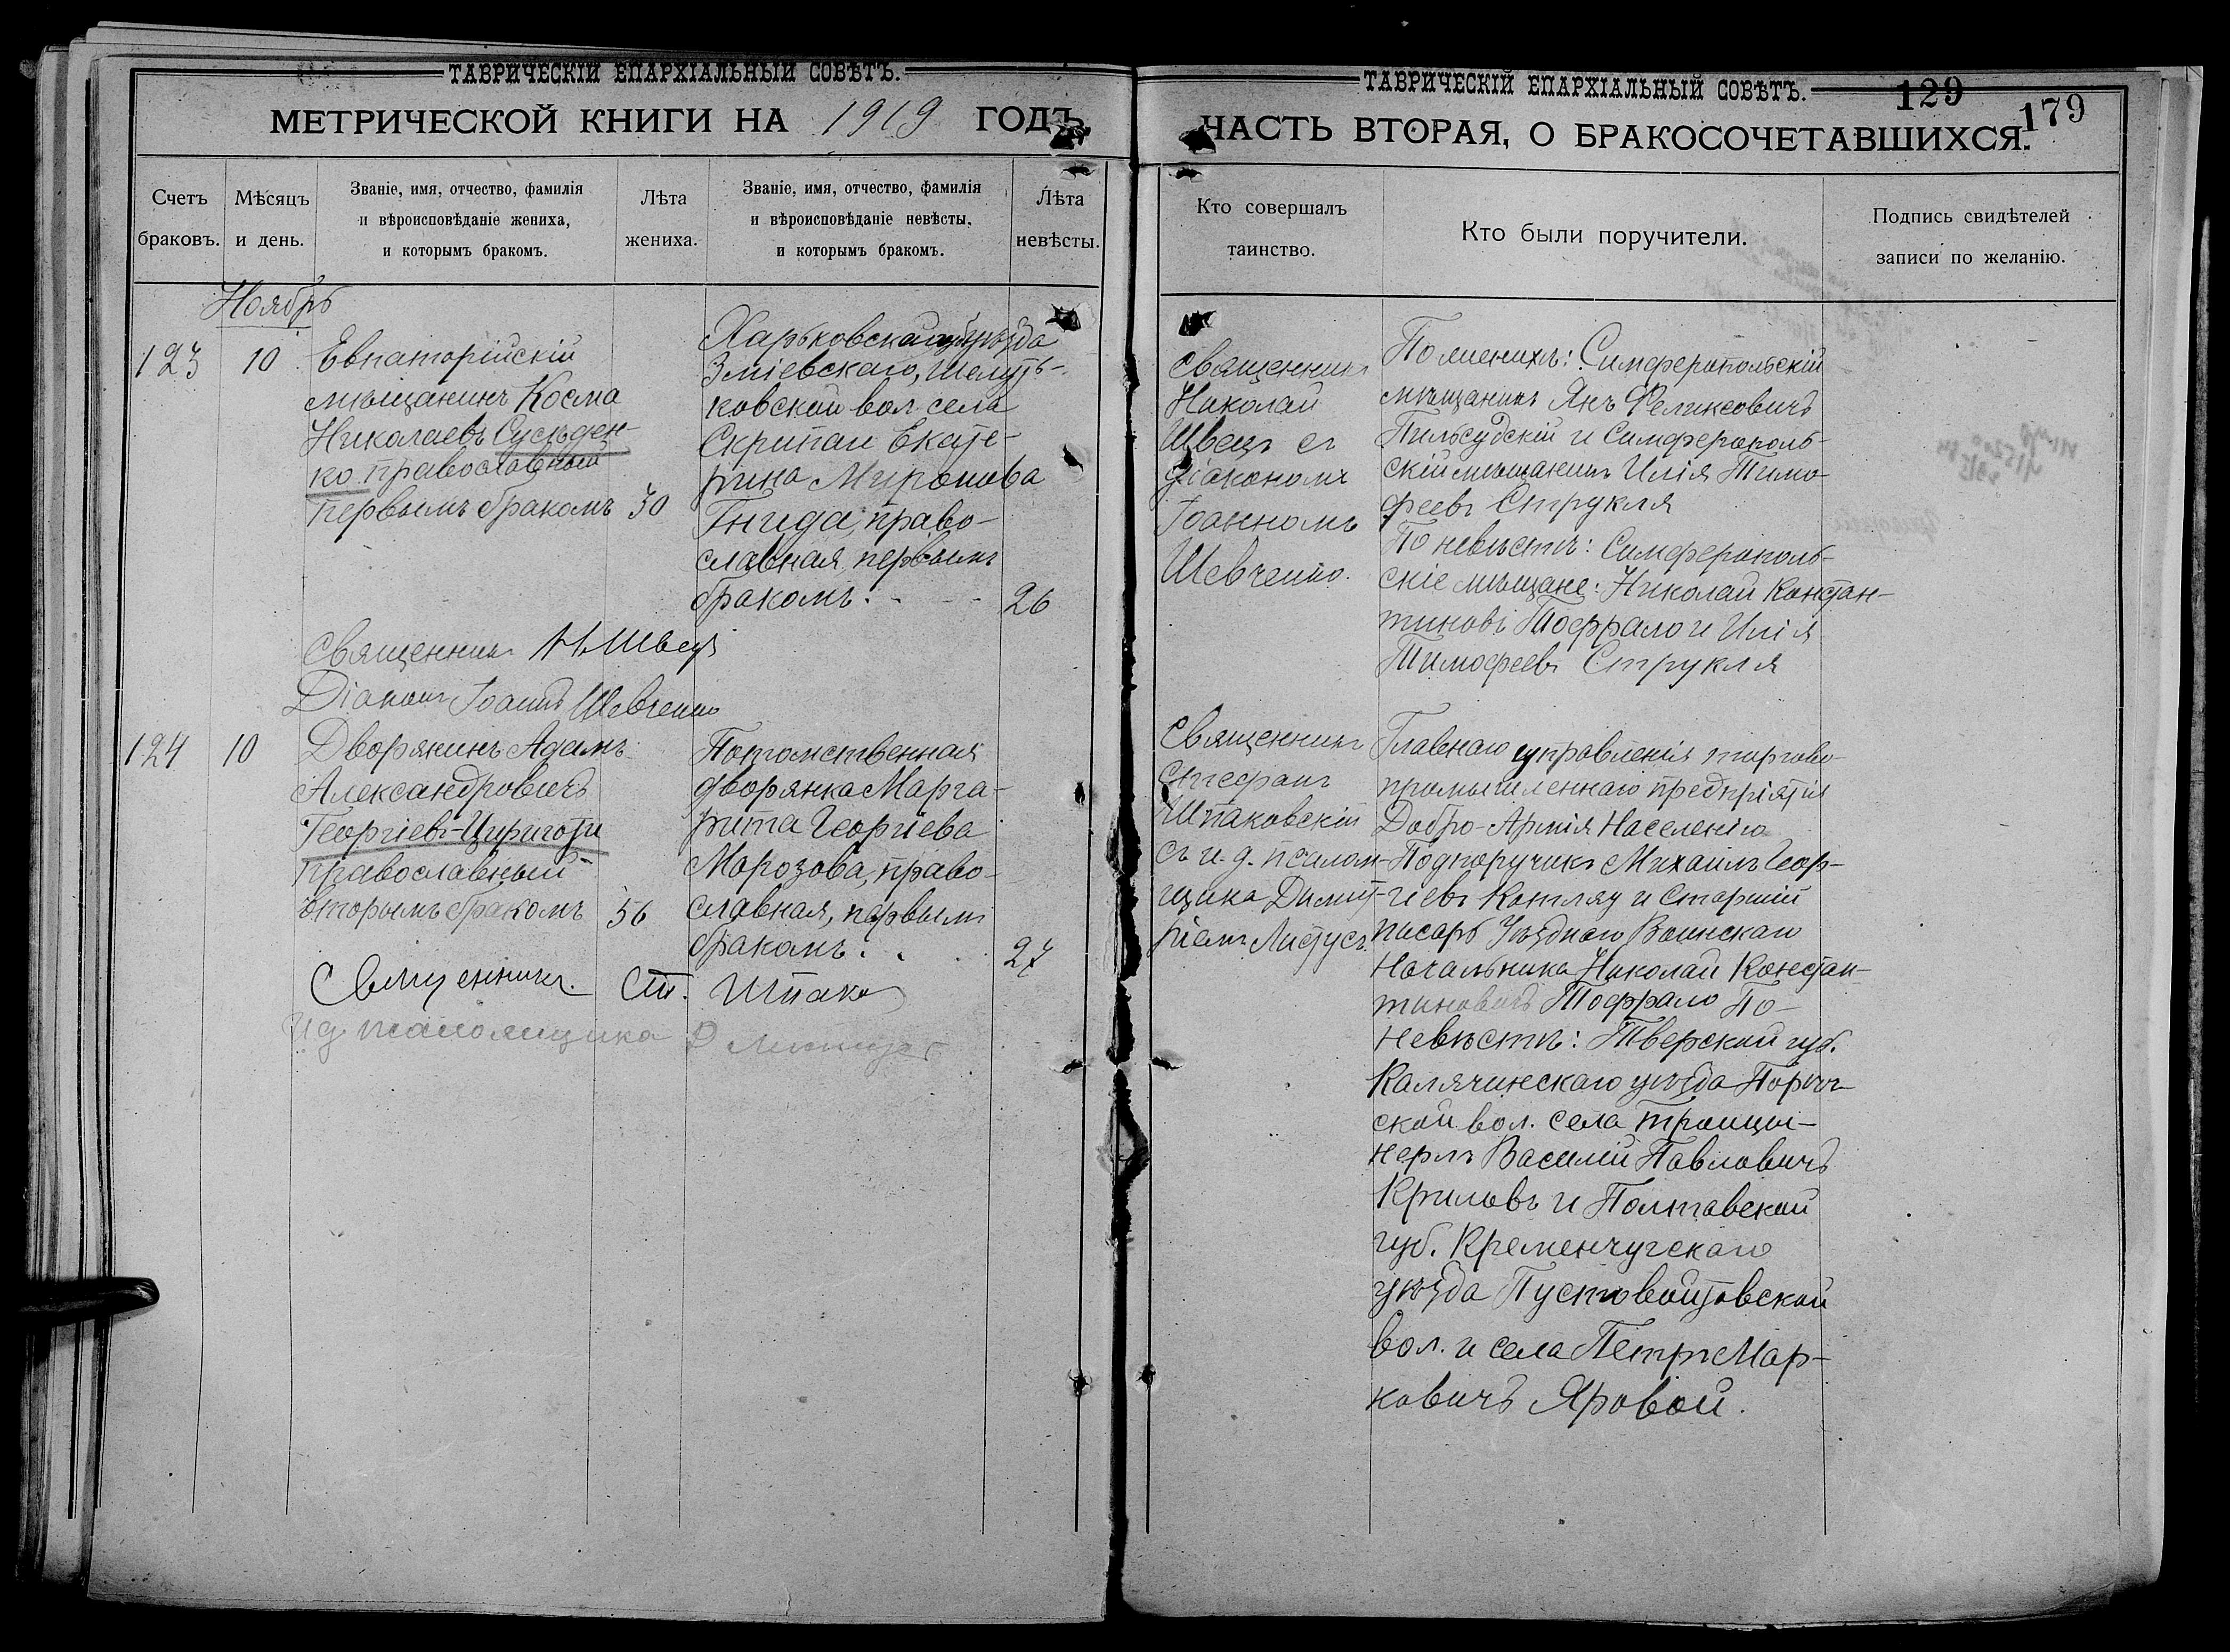 ТАВРИЧЕСКІЙ ЕПАРХІАЛЬНЫЙ СОВѢТЪ.
МЕТРИЧЕСКОЙ КНИГИ НА 1919 ГОДЪ.
Счетъ браковъ.
Мѣсяцъ и день.
Званіе, имя, отчество, фамилія
и вѣроисповѣданіе жениха,
и которымъ бракомъ.
Лѣта жениха.
Званіе, имя, отчество, фамилія
и вѣроисповѣданіе невѣсты,
и которымъ бракомъ.
Лѣта невѣсты.
Ноябрь
123
10
Евпаторійскій
мѣщанинъ Косма
Николаевъ Сусѣден-
ко православный
первымъ бракомъ
30
Харьковской губ уѣзда
Зміевскаго,
ковской вол. села
Скрипаи Екате-
рина Миронова
Гнида, право-
славная, первымъ
бракомъ.
26
Священникъ Н. Швецъ
Діаконъ Іоаннъ Шевченко
124
10
Дворянинъ Адамъ
Александровичъ
Георгіевъ-Цириготи
православный
вторымъ бракомъ
56
Потомственная
дворянка Марга-
рита Георгіева
Морозова, право-
славная, первымъ
бракомъ.
27
Священникъ Ст. Шпако
И д псаломщика Д Листусъ
ТАВРИЧЕСКІЙ ЕПАРХІАЛЬНЫЙ СОВѢТЪ.
129
179
ЧАСТЬ ВТОРАЯ, О БРАКОСОЧЕТАВШИХСЯ.
Кто совершалъ таинство.
Кто были поручители.
Подпись свидѣтелей
записи по желанію.
Священникъ
Николай
Швецъ съ
діакономъ
Іоанномъ
Шевченко.
По женихѣ: Симферопольскій
мѣщанинъ Янъ Феликсовичъ
Пильсудскій и Симферополь-
скій мѣщанинъ Илія Тимо-
феевъ Струкля
По невѣстѣ: Симферополь-
скіе мѣщане: Николай Констан-
тиновъ Тоффало и Илія
Тимофеевъ Струкля
Священникъ
Стефанъ
Шпаковскій
съ и. д. псалом-
щика Димит-
ріемъ Листусъ.
Главнаго управленія торгово-
промышленнаго предпріятія
Добро-Армія Населенію
Подпоручикъ Михаилъ Геор-
гіевъ Котляу и Старшій
писарь Уѣзднаго Воинскаго
Начальника Николай Констан-
тиновичъ Тоффало По-
невѣстѣ: Тверской губ.
Калячинскаго уѣзда
ской вол. села Троицы-
Нерль Василій Павловичъ
Криловъ и Полтавской
губ. Кременчугскаго
уѣзда Пустовойтовской
вол. и села Петръ Мар-
ковичъ Яровой.